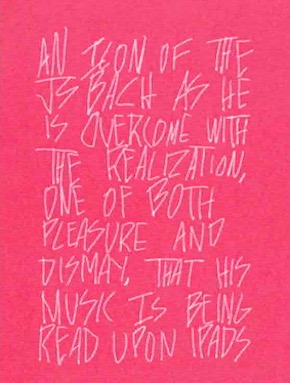 AN ICON OF THE
JS BACH AS HE
IS OVERCOME WITH
THE REALIZATION,
ONE OF BOTH
PLEASURE AND
DISMAY, THAT HIS
MUSIC IS BEING
READ UPON IPADS